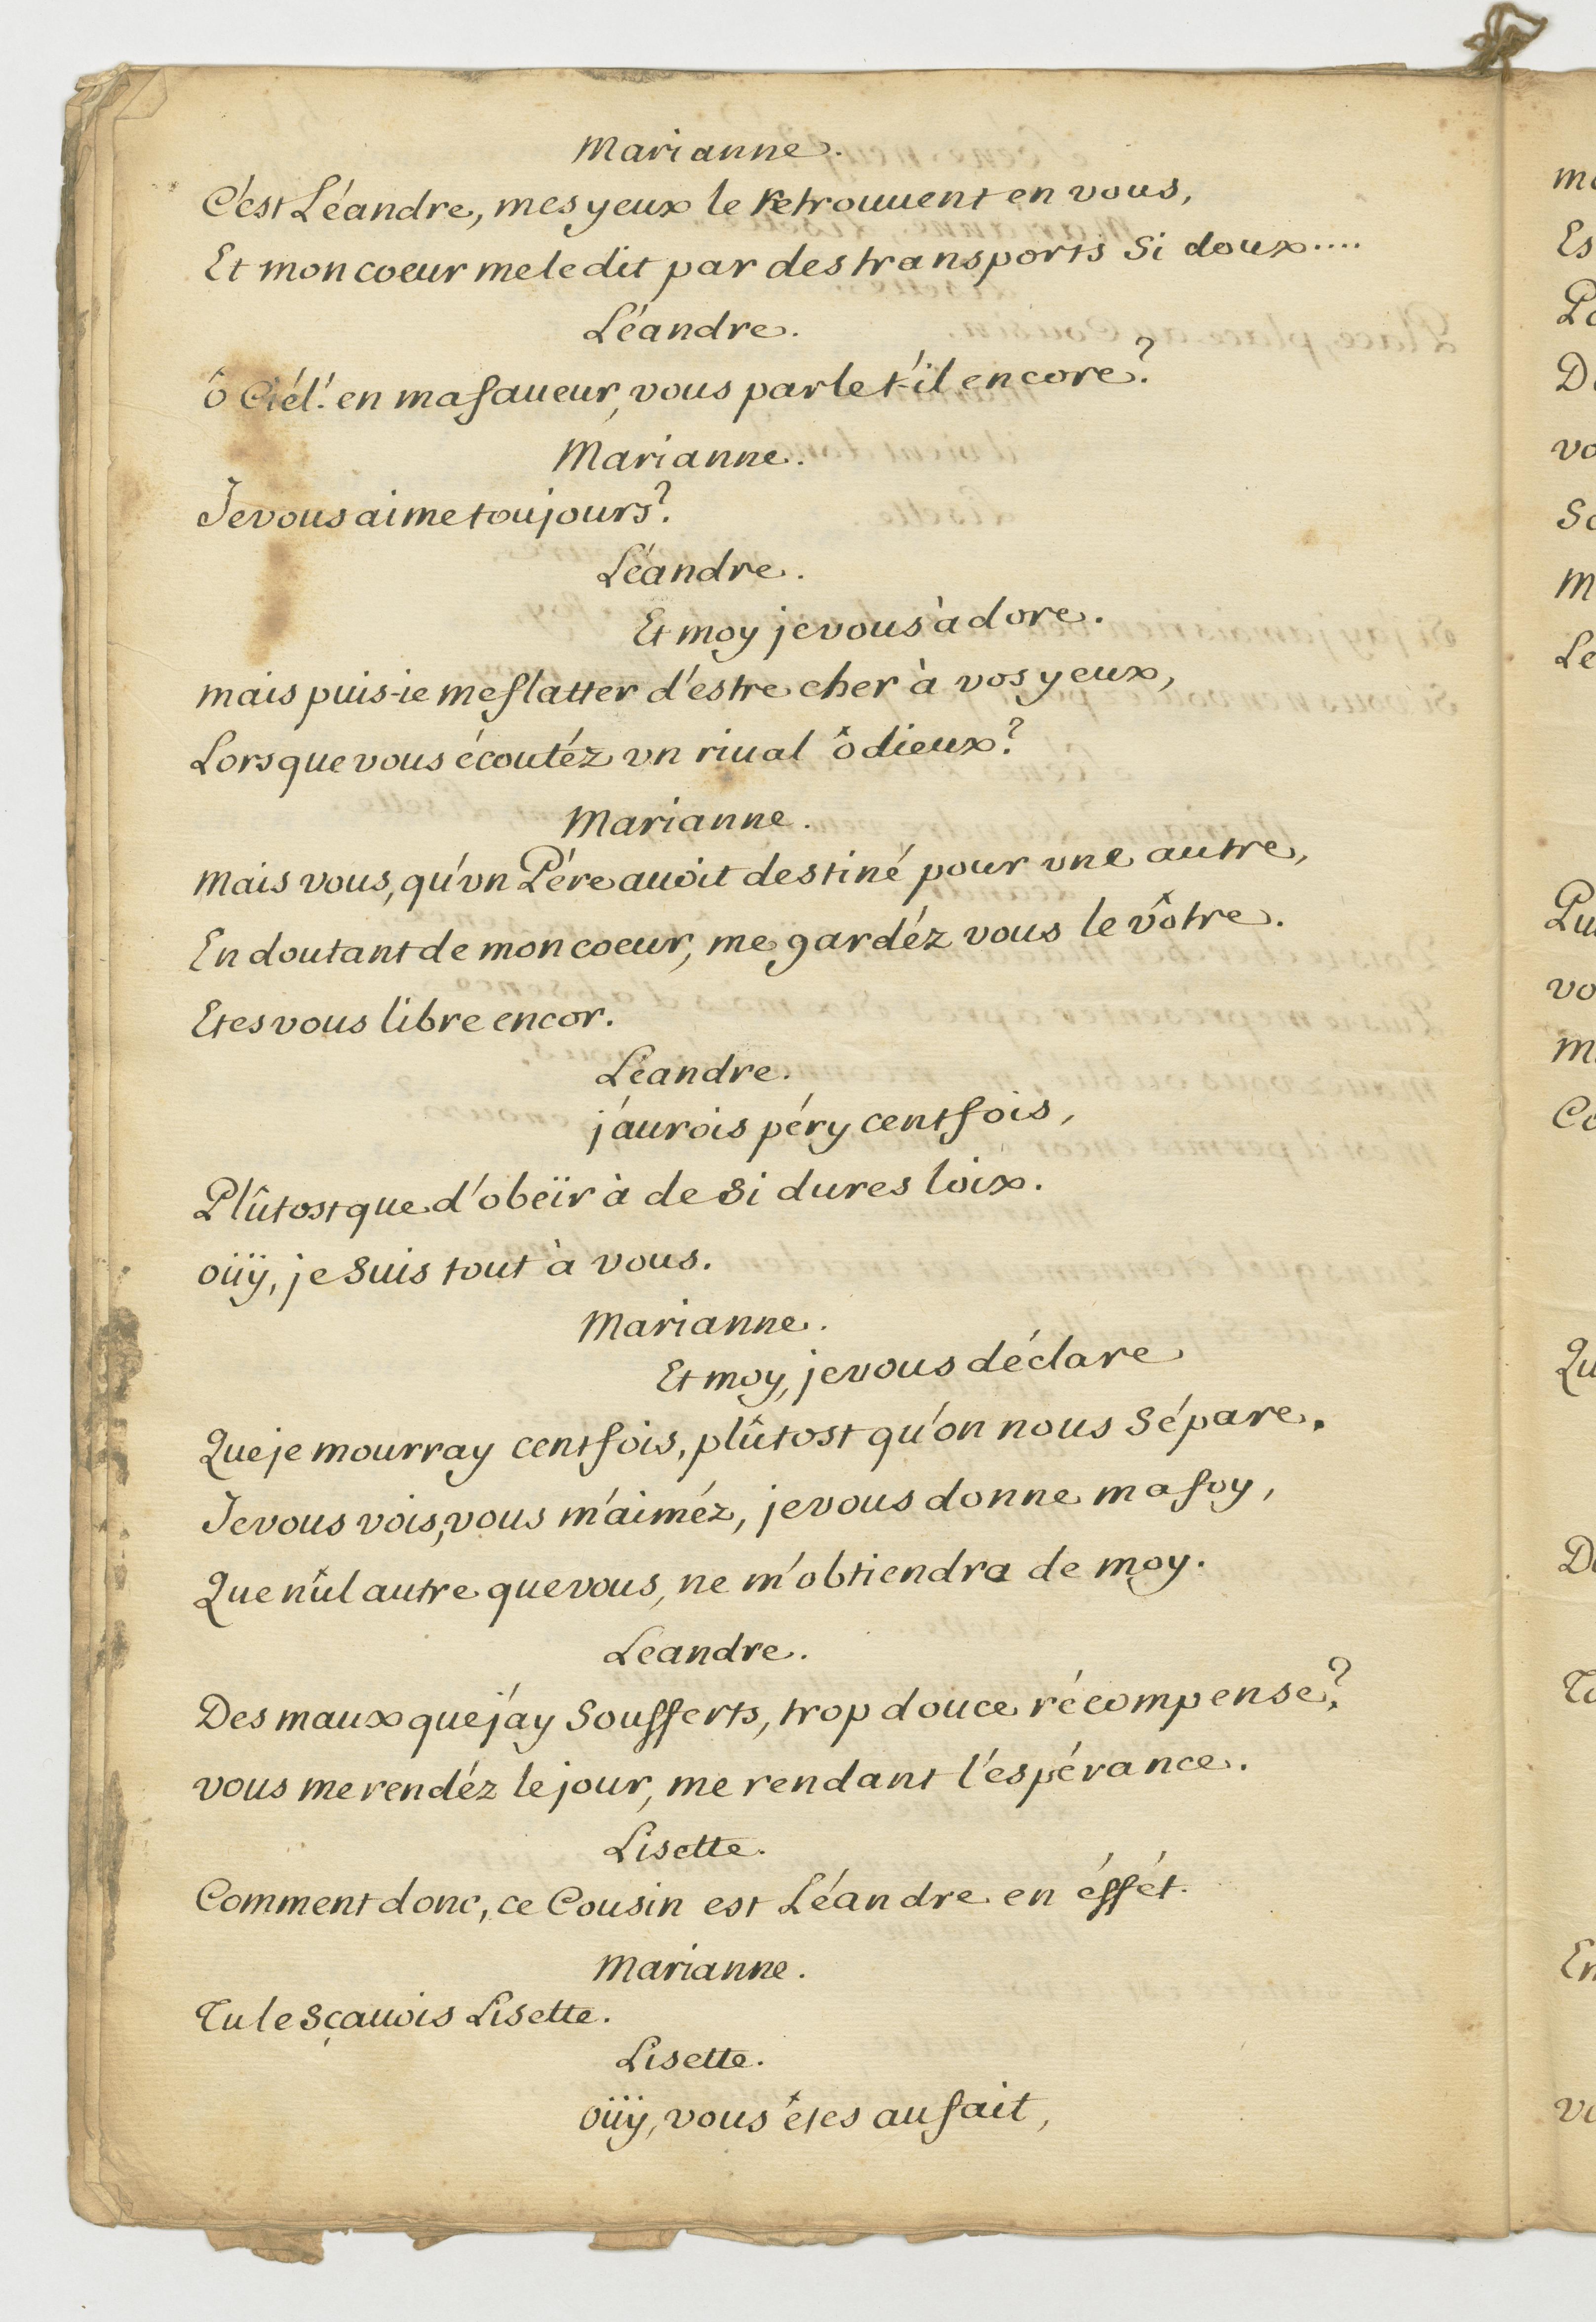 Marianne.
C'est Léandre, mes yeux le retrouuent en vous,
Et mon coeur me le dit par des transports si doux....
Léandre.
ô Ciél! en ma faueur, vous parle t-il encore?
Marianne.
Je vous aime toujours?
Léandre.
Et moy je vous adore.
mais puis-ie me flatter d'estre cher à vos yeux,
Lorsque vous écoutéz vn riual ôdieux?
Marianne.
Mais vous, qu'vn Pére auoit destiné pour vne autre,
En doutant de mon coeur, me gardéz vous le vôtre.
Etes vous libre encor.
Léandre.
j'aurois péry cent fois,
Plûtost que d'obeïr à de si dures loix.
oüÿ, je suis tout à vous.
Marianne.
Et moy, je vous déclare
Que je mourray cent fois, plûtost qu'on nous sépare.
Je vous vois, vous m'aiméz, je vous donne ma foy,
Que nûl autre que vous, ne m'obtiendra de moy.
Leandre.
Des maux que j'ay soufferts, trop douce récompense?
vous me rendéz le jour, me rendant l'espérance.
Lisette.
Comment donc, ce Cousin est Léandre en éffét.
Marianne.
Tu le sçauois Lisette.
Lisette.
oüÿ, vous êtes au fait,